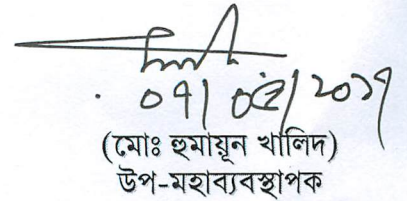 ০৭/০৫/২০১৭
(মোঃ হুমায়ূন খালিদ)
উপ-মহাব্যবস্থাপক